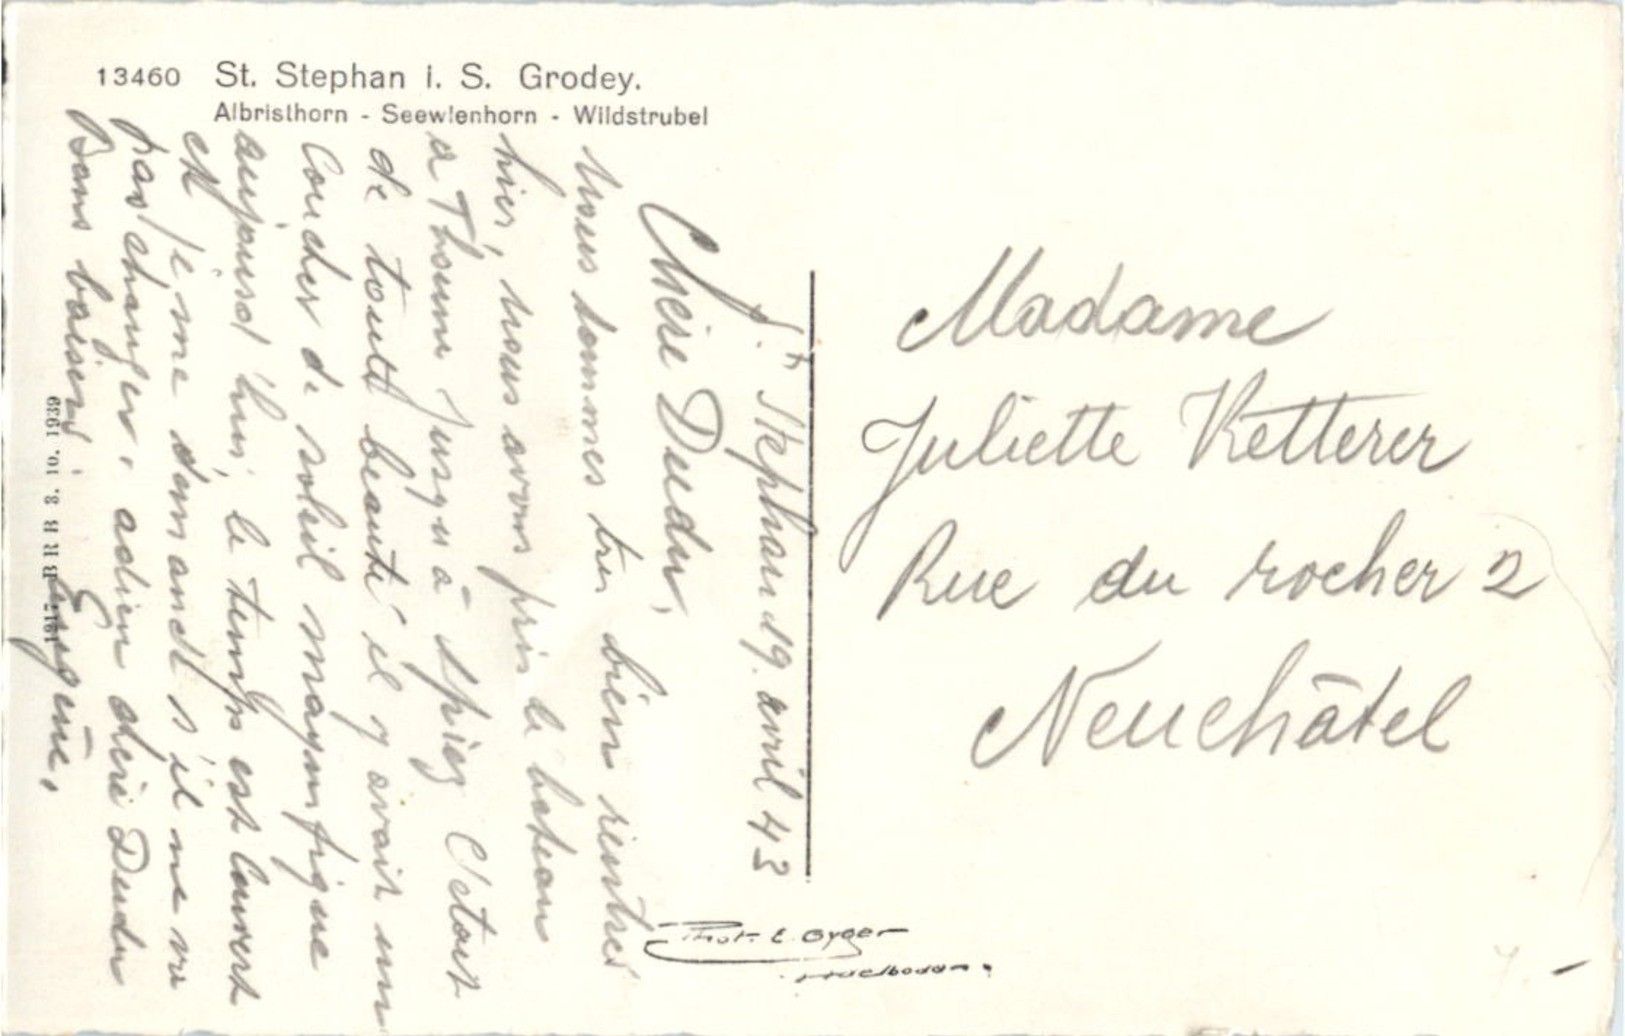 13460 St. Stephan i. S. Grodey.
Albristhorn - Seewlenhorn - Wildstrubel
St Stephan 19. avril 43
Chère Dudu,
Nous sommes très bien rentrés
hier, nous avons pris le bateau
a Thoune jusqu'à Spiez C'etait
de toute beauté il y avait un
Coucher de soleil magnifique
aujourd'hui, le temps est Couvert
et je me demande s'il ne va
pas changer, adieu chère Dudu
Bons baisers.
Eugène.
B R B 3. 10. 1939
Madame
Juliette Ketterer
Rue du rocher 2
Neuchâtel
Phot. E. Gyger
Adelboden.